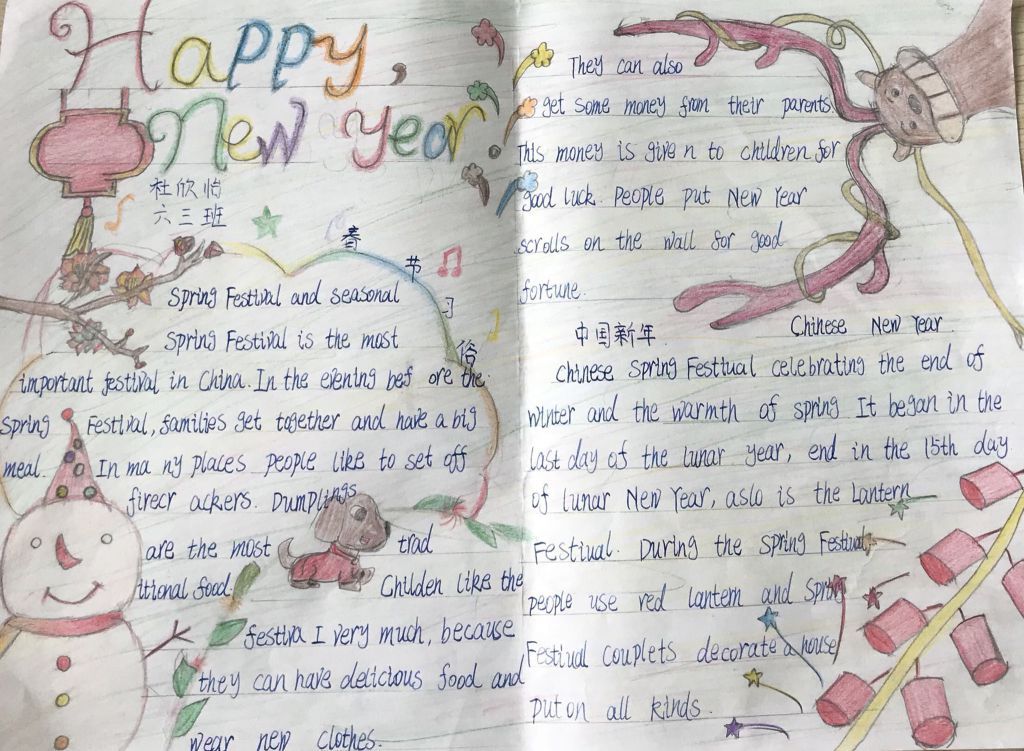 Happy,
New year
杜欣怡
六三班
春节习俗
Spring Festival and seasonal
Spring Festival is the most
important festival in China. In the evening bef ore the
Spring Festival, families get together and have a big
meal. In ma ny places people like to set off
firecr ackers. Dumplings
are the most trad
itional food. Childen like the
festiva I very much, because
they can have delicious food and
wear new clothes.
They can also
get some money from their parents
This money is give n to children for
good luck. People put New Year
scrolls on the wall for good
fortune.
中国新年. Chinese New Year
Chinese Spring Festiual celebrating the end of
winter and the warmth of spring It began in the
last day of the lunar year, end in the 15th day
of lunar New Year, aslo is the Lantern
Festiual. During the Spring Festiual,
people use red lantern and Spring
Festiual couplets decorate a house
put on all kinds.